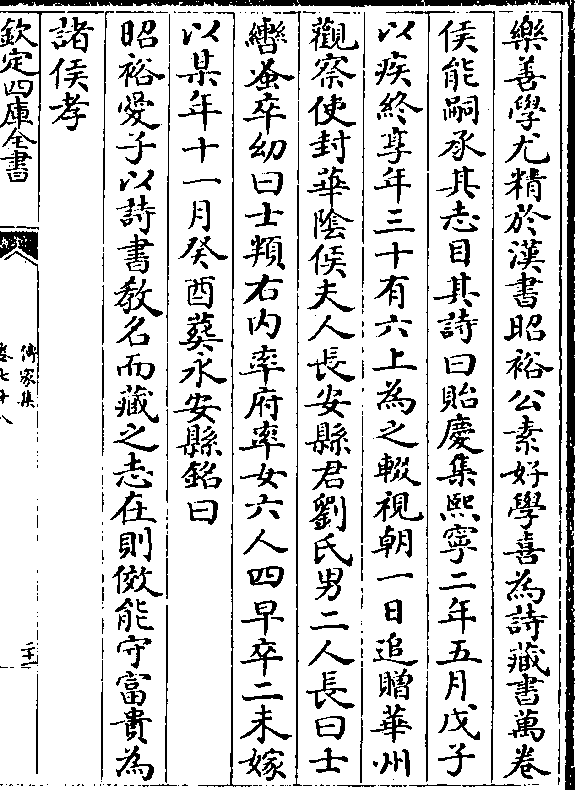 樂善學尤精於漢書昭裕公素好學喜為詩藏書萬卷
侯能嗣承其志目其詩曰貽慶集熙寧二年五月戊子
以疾終享年三十有六上為之輟視朝一日追贈華州
觀察使封華陰侯夫人長安縣君劉氏男二人長曰士
蚤卒幼曰士𩔖右内率府率女六人四早卒二未嫁
以某年十一月癸酉葬永安縣銘曰
昭裕愛子以詩書教名而藏之志在則傚能守富貴為
諸侯孝
欽定四庫全書
傳家集
卷七十八